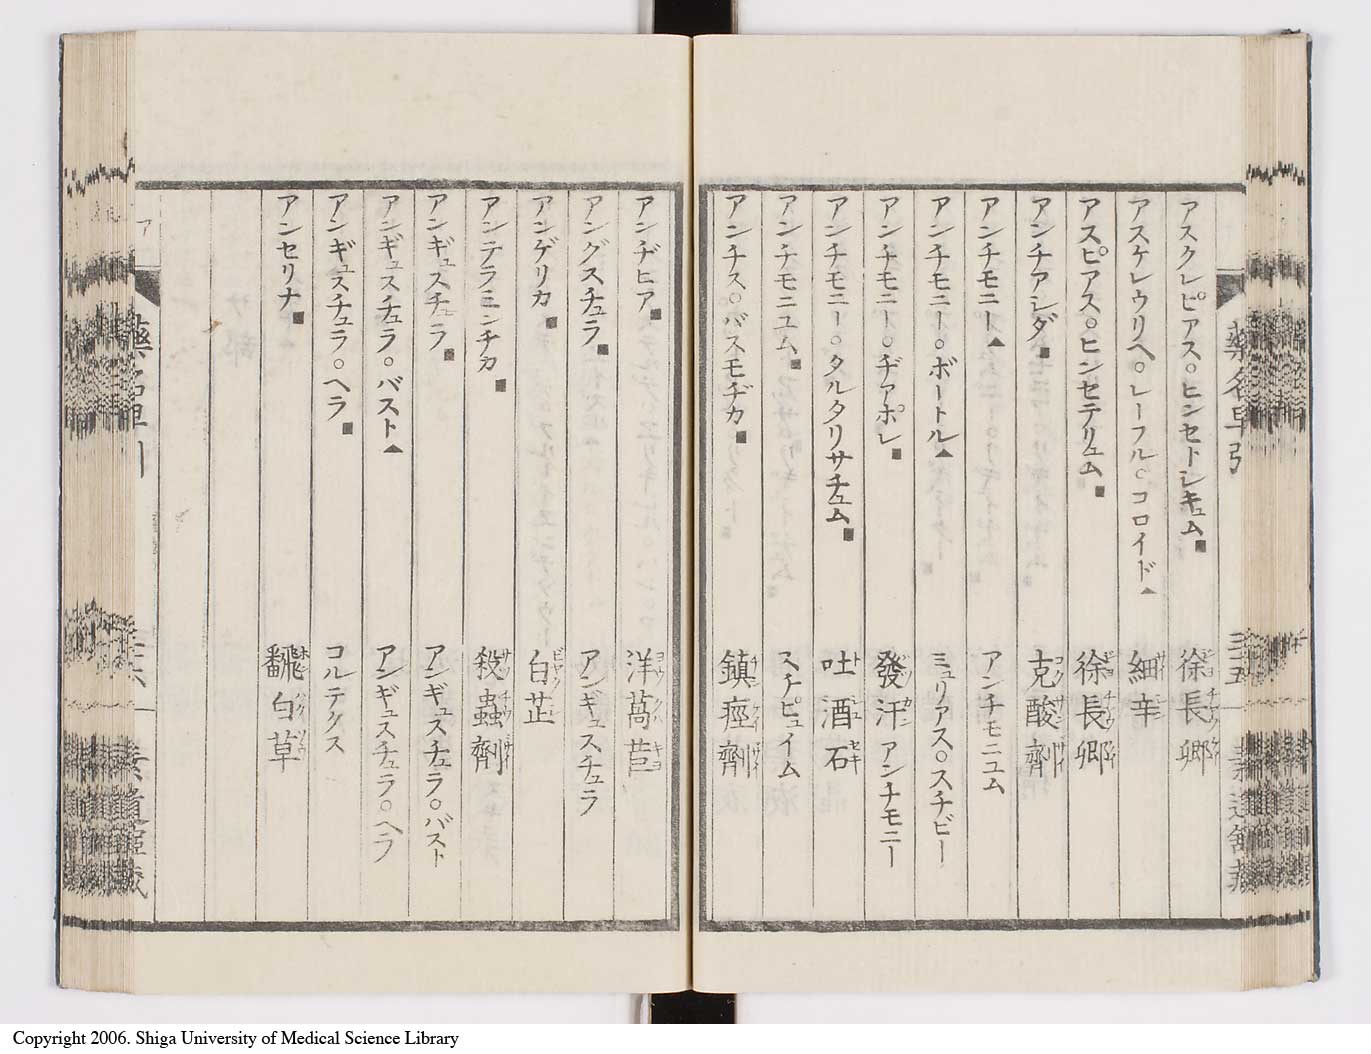 藥名早引
三五
アスクレピアス○ヒンセトレキュム■ 徐長卿
アスケレウリヘ○レーフル○コロイド▲ 細辛
アスピアス○ヒンセテリュム■ 徐長卿
アンチアシダ■ 克酸劑
アンチモニー▲ アンチモニユム
アンチモニー○ボートル▲ ミュリアス○スチビー
アンチモニー○ヂアポレ■ 發汗アンチモニー
アンチモニー○タルタリサチュム■ 吐酒石
アンチモニユム■ スチビュイム
アンチス○バスモヂカ■ 鎮痙劑
アンヂヒア■ 洋萵苣
アングスチュラ■ アンギュスチュラ
アンゲリカ■ 白芷
アンテラミンチカ■ 殺蟲劑
アンギュスチュラ■ アンギュスチュラ○バスト
アンギュスチュラ○バスト▲ アンギュスチュラ○ヘラ
アンギュスチュラ○ヘラ■ コルテクス
アンセリナ■ 飜白草
ア
Copyright 2006. Shiga University of Medical Science Library